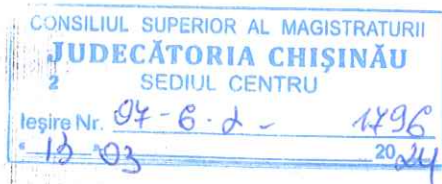 CONSILIUL SUPERIOR AL MAGISTRATURII
JUDECĂTORIA CHIȘINĂU
2 SEDIUL CENTRU
Ieșire Nr. 97-6.2- 1796
"13" 03 2024